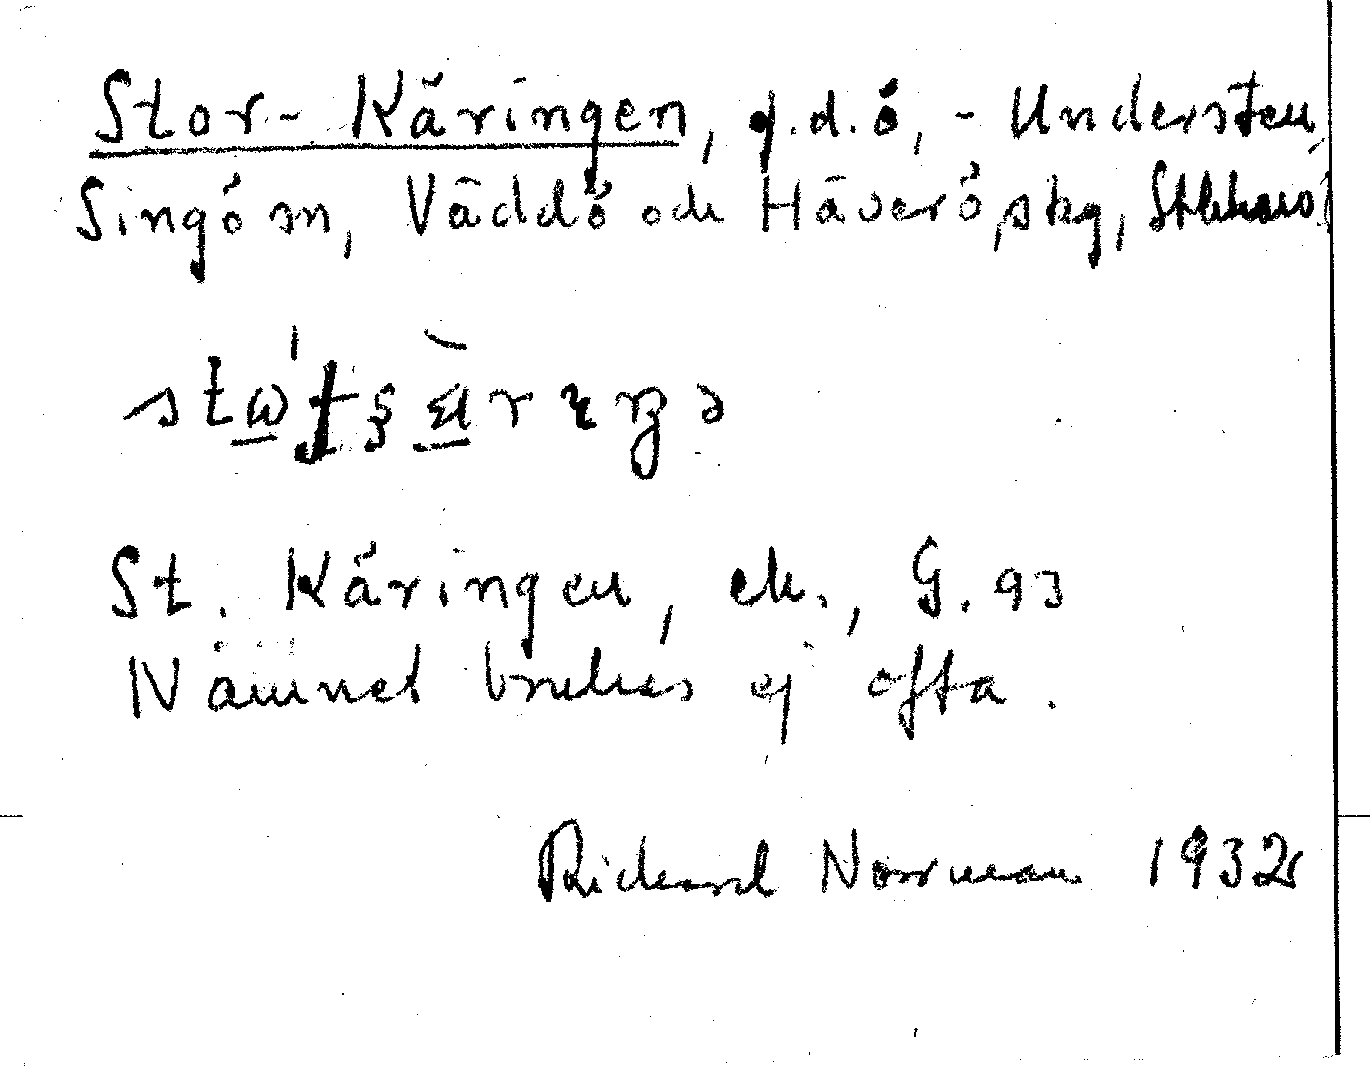 Stor-Käringen, g.d.ö, - Understen,
Singö sn, Väddö och Häverö skg, Sthlms
St. Käringen, ek., G. 93
Namnet brukas ej ofta.
Rickard Norrman 1932